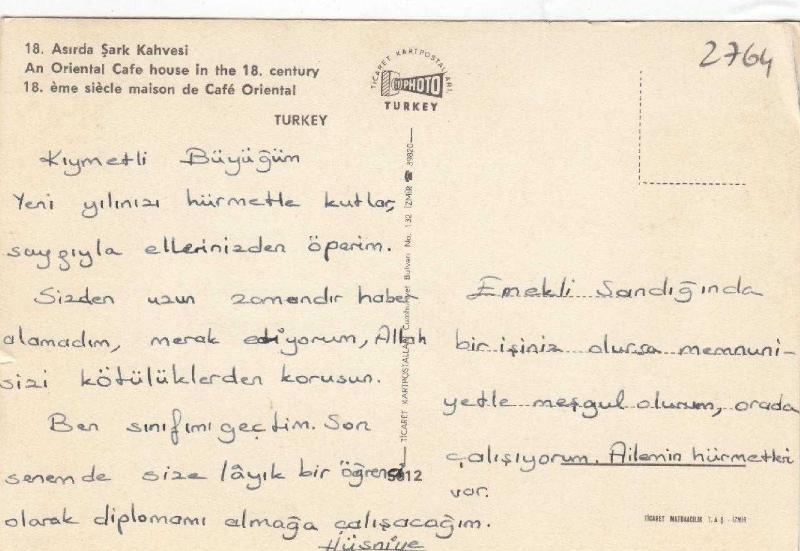 18. Asırda Şark Kahvesi
An Oriental Cafe house in the 18. century
18. ème siècle maison de Café Oriental
TURKEY
TİCARET KARTPOSTALLARI
PHOTO
TURKEY
2764
Kıymetli Büyüğüm
Yeni yılınızı hürmetle kutlar,
saygıyla ellerinizden öperim.
Sizden uzun zamandır haber
alamadım, merak ediyorum, Allah
sizi kötülüklerden korusun.
Ben sınıfımı geçtim. Son
senem de size lâyık bir öğrenci
olarak diplomamı almağa çalışacağım.
Hüsniye
TİCARET KARTPOSTALLARI Cumhuriyet Bulvarı No. 132 İZMİR ☎ 39820
5612
Emekli Sandığında
bir işiniz olursa memnuni-
yetle meşgul olurum, orada
çalışıyorum. Ailemin hürmetleri
var.
TİCARET MATBAACILIK T.A.Ş - İZMİR